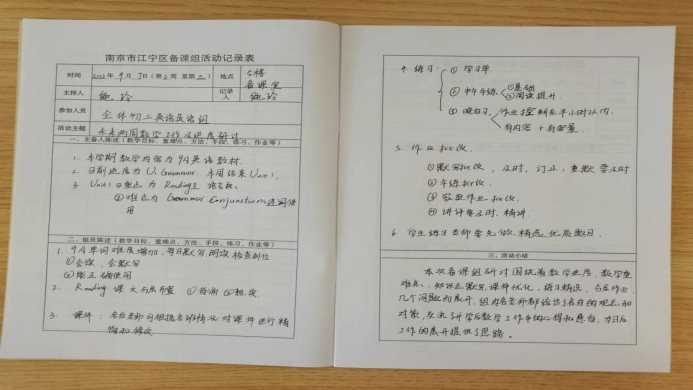 南京市江宁区备课组活动记录表
时间 2022年9月7日(第2周 星期三) 地点 5楼备课室
主持人 施玲 记录人 施玲
参加人员 全体初三英语组
活动主题 未来两周教学工作及进度研讨
一、主备人陈述(教学目标、重难点、方法、手段、练习、作业等)
1. 本学期教学内容为9A英语教材.
2. 目前进度为U1 Grammar. 本周结束Unit 1.
3. Unit 1 ①重点为Reading课
②难点为Grammar Conjunctions连词使用
二、组员陈述(教学目标、重难点、方法、手段、练习、作业等)
1. 9A单词难度增加,每日默写,阅读检查到位
①会读,会默写
②能正确使用
2. Reading 课文 布置 ①背诵 ②
3. 课件:各位老师可根据各班情况对课件进行精简和修改
4. 练习:①学习单
②中午午练 ①基础 ②阅读提升.
③晚自习,作业控制在半小时以内.
有内容+有容量.
5. 作业批改
①默写批改,及时,订正,重默要及时
②午练批改.
③家庭作业批改
④讲评要及时.精讲.
6 学生练习老师要先做,精选优质题目.
三、活动小结
本次备课组研讨围绕着教学进度、教学重
难点、知识点默写、课件优化、练习精选、分层作业
几个问题的展开.组内各老师都给出了各自的观点和
对策,交流了开学后教学工作中的心得和思考,为日后
工作的展开提供了思路.